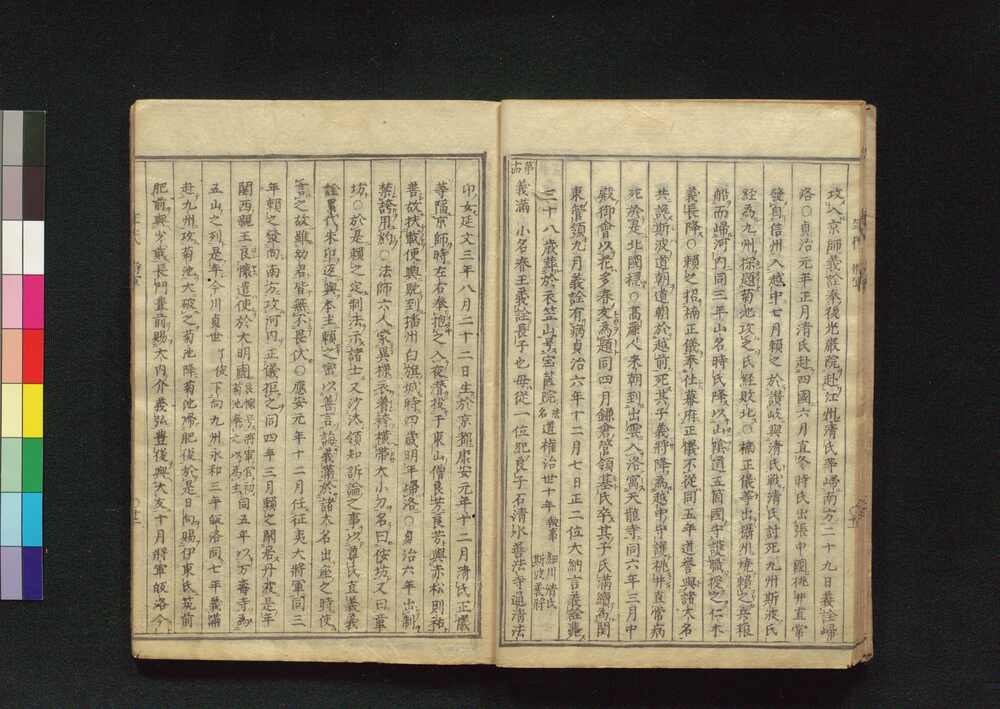 攻入京師義詮奉後光嚴院赴江州清氏等皈南方二十九日義詮皈
洛○貞治元年正月清氏赴四國六月直冬時氏出張中國桃井直常
發自信州入越中七月頼之於讃岐與清氏戦清氏討死九州斯波氏
経為九州探題菊池攻之氏経敗北○楠正儀等出攝州焼頼之兵粮
船而皈河内同三年山名時氏降以山陰道五箇國守護職授之仁木
義長降○頼之招楠正儀奉仕幕府正儀不從同五年道誉與諸大名
共譲斯波道朝道朝於越前死其子義將降為越中守護桃井直常病
死於是北國穏○高麗人来朝到出雲入洛寓天龍寺同六年三月中
殿御會以花多春友為題同四月鎌倉管領基氏卒其子氏満續為関
東管領九月義詮有病貞治六年十二月七日正二位大納言義詮薨
三十八歳葬於衣笠山号宝筐院法名道權治世十年執事 細川清氏 斯波義將
第
義満 小名春王義詮長子也母從一位紀良子石清水善法寺通清法
印女延文三年八月二十二日生於京都康安元年十二月清氏正儀
等陥京師時左右奉抱之入夜潜投于東山僧良芳良芳與赤松則祐
善故扶載便輿脱到播州白旗城時四歳明年皈洛○貞治六年出制
禁誇用約○法師六人家異様衣着誇横帯大小刀名曰侫坊又曰童
坊○於是頼之定制法示諸士又沙汰領知訴論之事以尊氏直義義
詮累代朱印返與本主頼之密以善言誨義満於諸大名出座之時使
言之故雖幼君皆無不畏伏○應安元年十二月任征夷大將軍同三
年頼之發向南方攻河内正儀拒之同四年三月頼之開剃丹波是年
関西親王良懐遣使於大明國良懐号將軍宮祠菊池奉之以為主同五年以万壽寺為
五山之列是年今川貞世了俊下向九州永和三年皈洛同七年義満
赴九州攻菊池大破之菊池降菊池皈肥後於是日向賜伊東氏筑前
肥前與少貳長門豊前賜大内介義弘豊後與大友十月將軍皈洛今